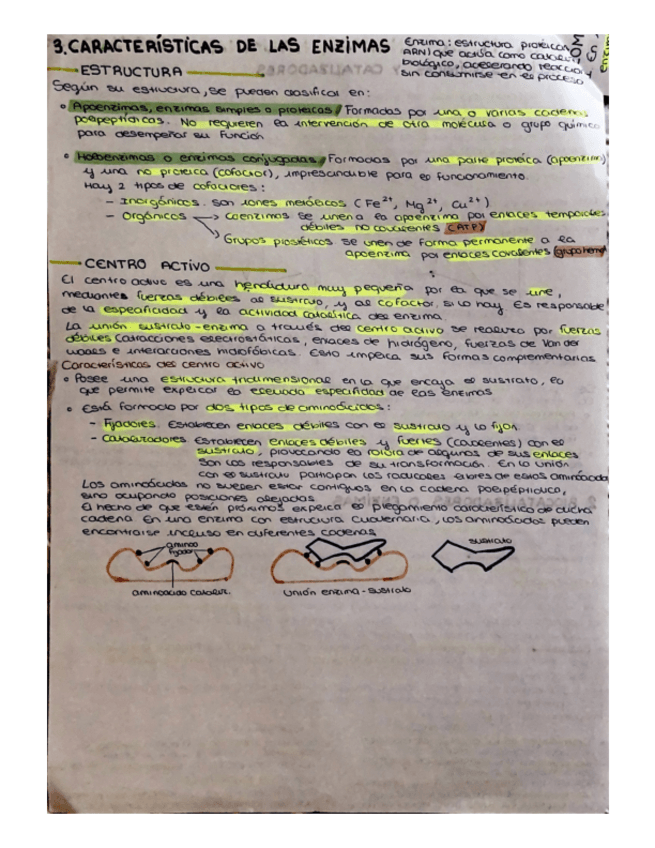 3. CARACTERÍSTICAS DE LAS ENZIMAS
Enzima: estructura proteica
ARN) que actúa como cataliz
biológico, acelerando reacción
sin consumirse en el proceso
ESTRUCTURA
Según su estructura, se pueden clasificar en:
• Apoenzimas, enzimas simples o proteicas/ Formadas por una o varias cadenas
polipeptídicas. No requieren la intervención de otra molécula o grupo químico
para desempeñar su función.
• Holoenzimas o enzimas conjugadas/ Formadas por una parte proteica (apoenzima)
y una no proteica (cofactor), imprescindible para el funcionamiento.
Hay 2 tipos de cofactores:
– Inorgánicos. Son iones metálicos (Fe²⁺, Mg²⁺, Cu²⁺)
– Orgánicos → Coenzimas se unen a la apoenzima por enlaces temporales
débiles no covalentes (ATP)
Grupos prostéticos se unen de forma permanente a la
apoenzima por enlaces covalentes (grupo hemo)
CENTRO ACTIVO
El centro activo es una hendidura muy pequeña por la que se une,
mediantes fuerzas débiles al sustrato, y al cofactor, si lo hay. Es responsable
de la especificidad y la actividad catalítica del enzima.
La unión sustrato-enzima a través del centro activo se realiza por fuerzas
débiles (atracciones electrostáticas, enlaces de hidrógeno, fuerzas de Van der
Waals e interacciones hidrofóbicas. Esto implica sus formas complementarias
Características del centro activo
• Posee una estructura tridimensional en la que encaja el sustrato, lo
que permite explicar la elevada especifidad de las enzimas
• Está formado por dos tipos de aminoácidos:
– Fijadores. Establecen enlaces débiles con el sustrato y lo fijan.
– Catalizadores. Establecen enlaces débiles y fuertes (covalentes) con el
sustrato, provocando la rotura de algunos de sus enlaces
Son los responsables de su transformación. En la unión
con el sustrato participan los radicales libres de estos aminoácidos
Los aminoácidos no suelen estar contiguos en la cadena polipéptidica,
sino ocupando posiciones alejadas.
El hecho de que estén próximos explica el plegamiento característico de dicha
cadena. En una enzima con estructura cuaternaria, los aminoácidos pueden
encontrarse incluso en diferentes cadenas
aminoá
fijador
sustrato
aminoácido cataliz.
Unión enzima-sustrato